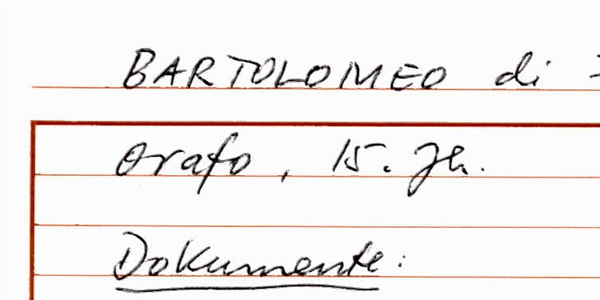 BARTOLOMEO di
Orafo, 15. Jh.
Dokumente: